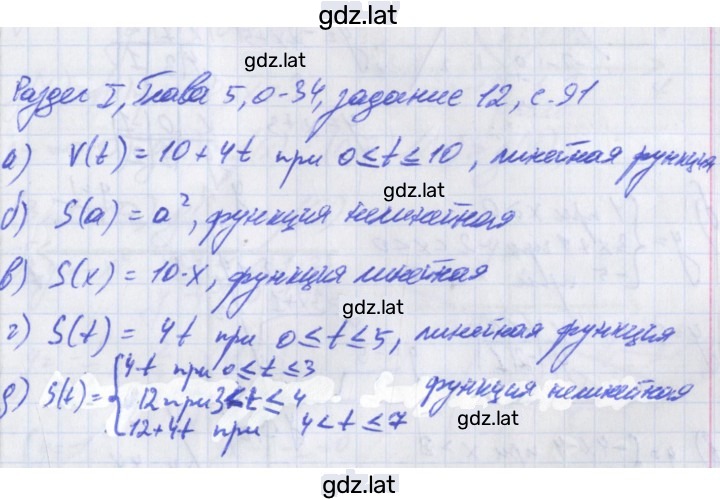 gdz.lat
gdz.lat
Раздел I, Глава 5, О-34, задание 12, с.91
а) V(t) = 10 + 4t при 0 ≤ t ≤ 10, линейная функция
gdz.lat
б) S(a) = a², функция нелинейная
в) S(x) = 10·x, функция линейная
gdz.lat
г) S(t) = 4t при 0 ≤ t ≤ 5, линейная функция
д) S(t) = { 4t при 0 ≤ t ≤ 3
12 при 3 < t ≤ 4 функция нелинейная
12+4t при 4 < t ≤ 7
gdz.lat
gdz.lat